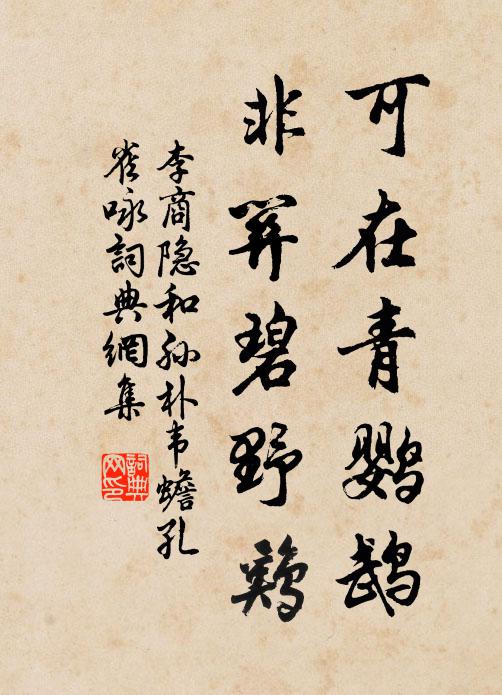 可在青鹦鹉
非关碧野鸡
李商隐和孙朴韦蟾孔
雀咏詞典網集
詞典
网印